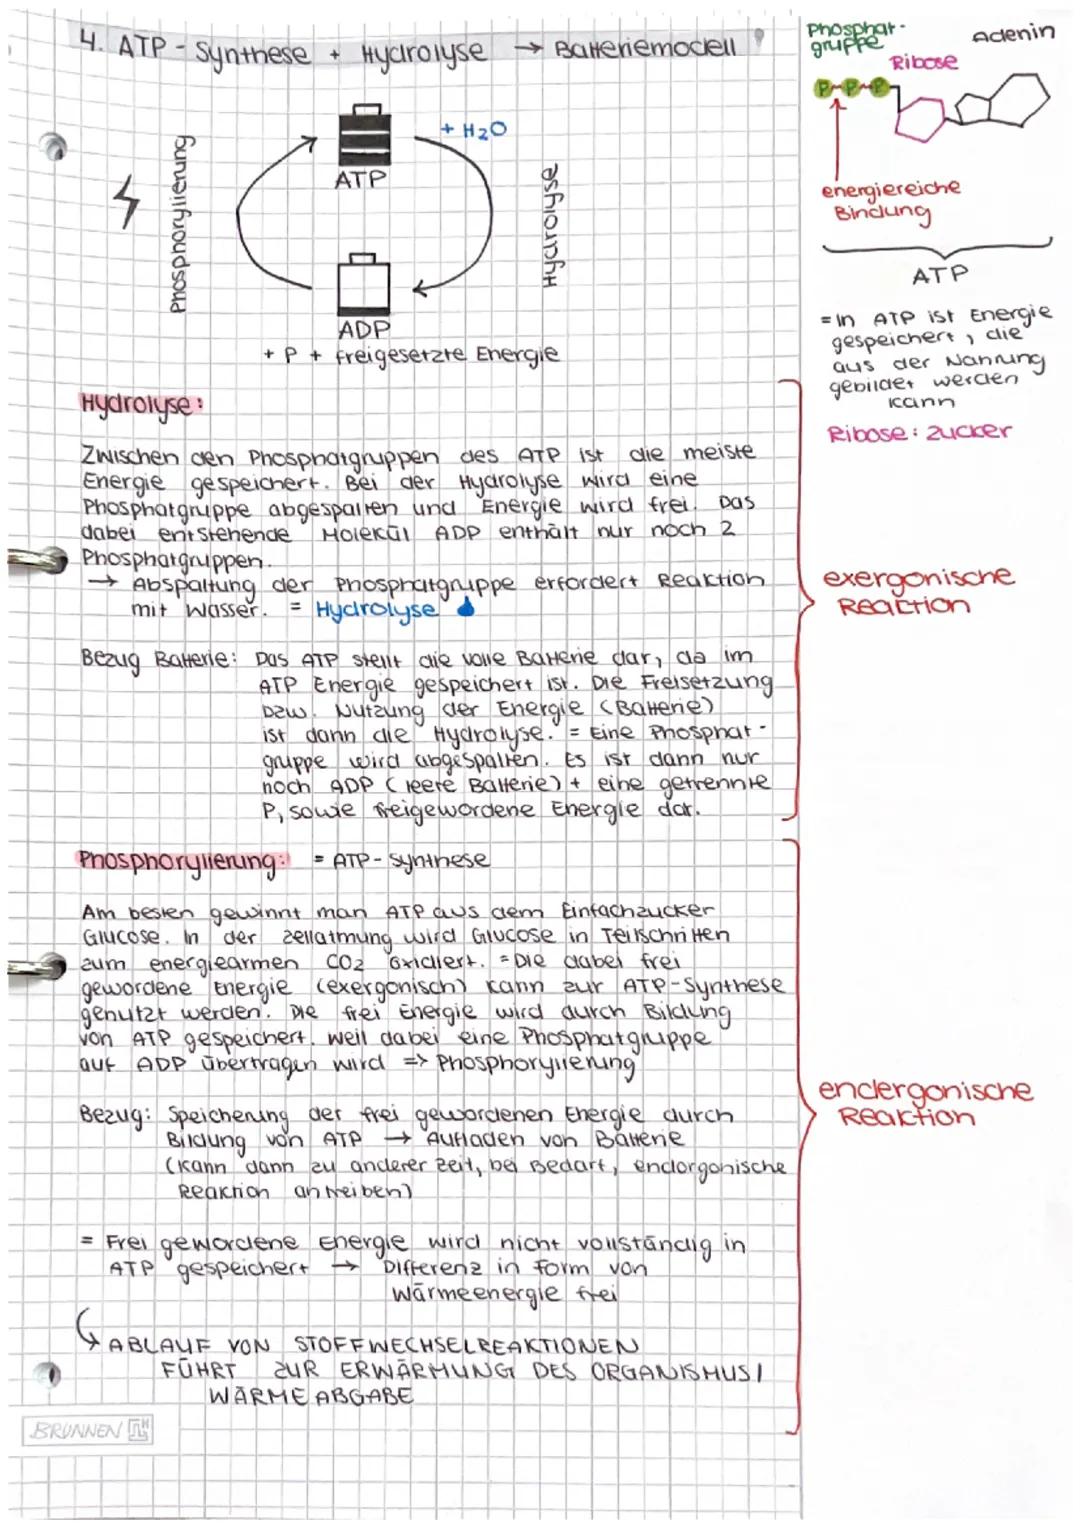 4. ATP - Synthese + Hydrolyse → Batteriemodell
Phosphat-
gruppe
Adenin
Ribose
P P P
energiereiche
Bindung
ATP
= In ATP ist Energie
gespeichert, die
aus der Nahrung
gebildet werden
kann
Ribose: Zucker
Phosphorylierung
ATP
+ H2O
Hydrolyse
ADP
+ P + freigesetzte Energie
Hydrolyse:
Zwischen den Phosphatgruppen des ATP ist die meiste
Energie gespeichert. Bei der Hydrolyse wird eine
Phosphatgruppe abgespalten und Energie wird frei. Das
dabei entstehende Molekül ADP enthält nur noch 2
Phosphatgruppen.
→ Abspaltung der Phosphatgruppe erfordert Reaktion
mit Wasser. = Hydrolyse
exergonische
Reaktion
Bezug Batterie: Das ATP stellt die volle Batterie dar, da im
ATP Energie gespeichert ist. Die Freisetzung
bzw. Nutzung der Energie (Batterie)
ist dann die Hydrolyse. = Eine Phosphat-
gruppe wird abgespalten. Es ist dann nur
noch ADP (leere Batterie) + eine getrennte
P, sowie freigewordene Energie dar.
Phosphorylierung: = ATP - Synthese
Am besten gewinnt man ATP aus dem Einfachzucker
Glucose. In der Zellatmung wird Glucose in Teilschritten
zum energiearmen CO2 oxidiert. = Die dabei frei
gewordene Energie (exergonisch) kann zur ATP-Synthese
genutzt werden. Die frei Energie wird durch Bildung
von ATP gespeichert. Weil dabei eine Phosphatgruppe
auf ADP übertragen wird => Phosphorylierung
endergonische
Reaktion
Bezug: Speicherung der frei gewordenen Energie durch
Bildung von ATP → Aufladen von Batterie
(kann dann zu anderer Zeit, bei Bedarf, endorgonische
Reaktion antreiben)
= Frei gewordene Energie wird nicht vollständig in
ATP gespeichert → Differenz in Form von
Wärmeenergie frei
↳ ABLAUF VON STOFFWECHSELREAKTIONEN
FÜHRT ZUR ERWÄRMUNG DES ORGANISMUS/
WÄRMEABGABE
BRUNNEN